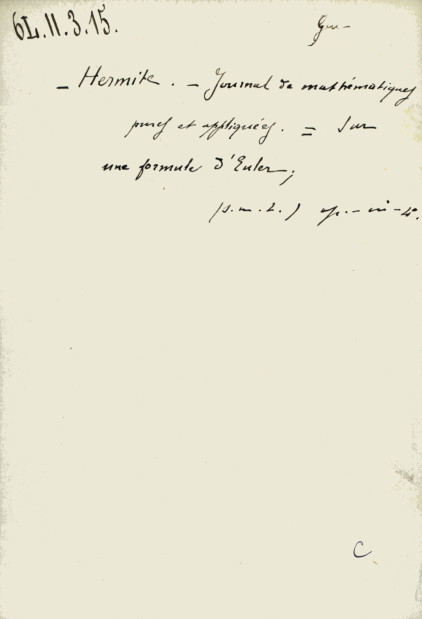 6L.11.3.15.
- Hermite. - Journal de mathématiques
pures et appliquées. = Sur
une formule d'Euler;
(s. n. t.) in-4º.
C